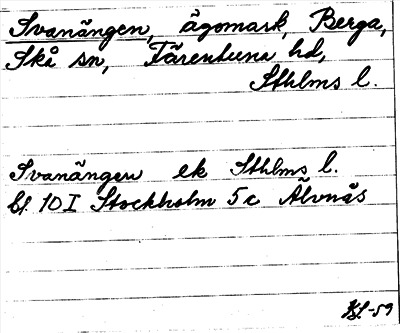 Svanängen, ägomark, Berga,
Skå sn, Färentuna hd,
Sthlms l.
Svanängen ek Sthlms l.
bl. 10 I Stockholm 5 c Älvnäs
-59